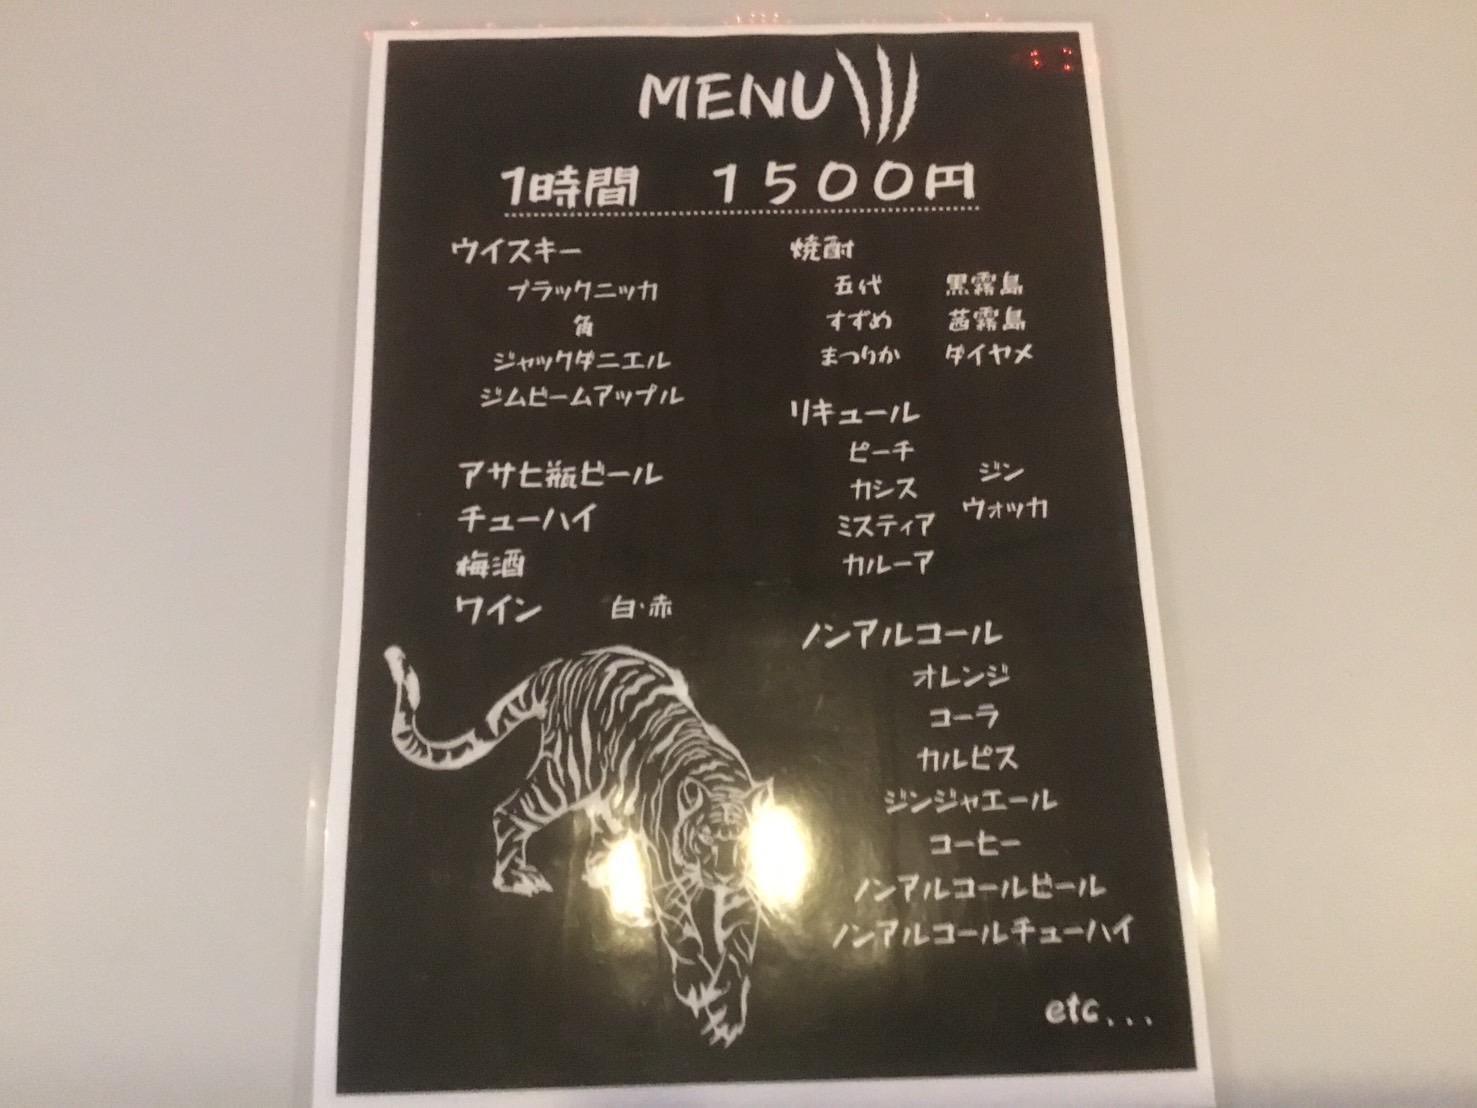 MENU
1時間　1500円
ウイスキー
ブラックニッカ
角
ジャックダニエル
ジムビームアップル
アサヒ瓶ビール
チューハイ
梅酒
ワイン　白・赤
焼酎
五代　黒霧島
すずめ　茜霧島
まつりか　ダイヤメ
リキュール
ピーチ
カシス
ミスティア
カルーア
ジン
ウォッカ
ノンアルコール
オレンジ
コーラ
カルピス
ジンジャエール
コーヒー
ノンアルコールビール
ノンアルコールチューハイ
etc...